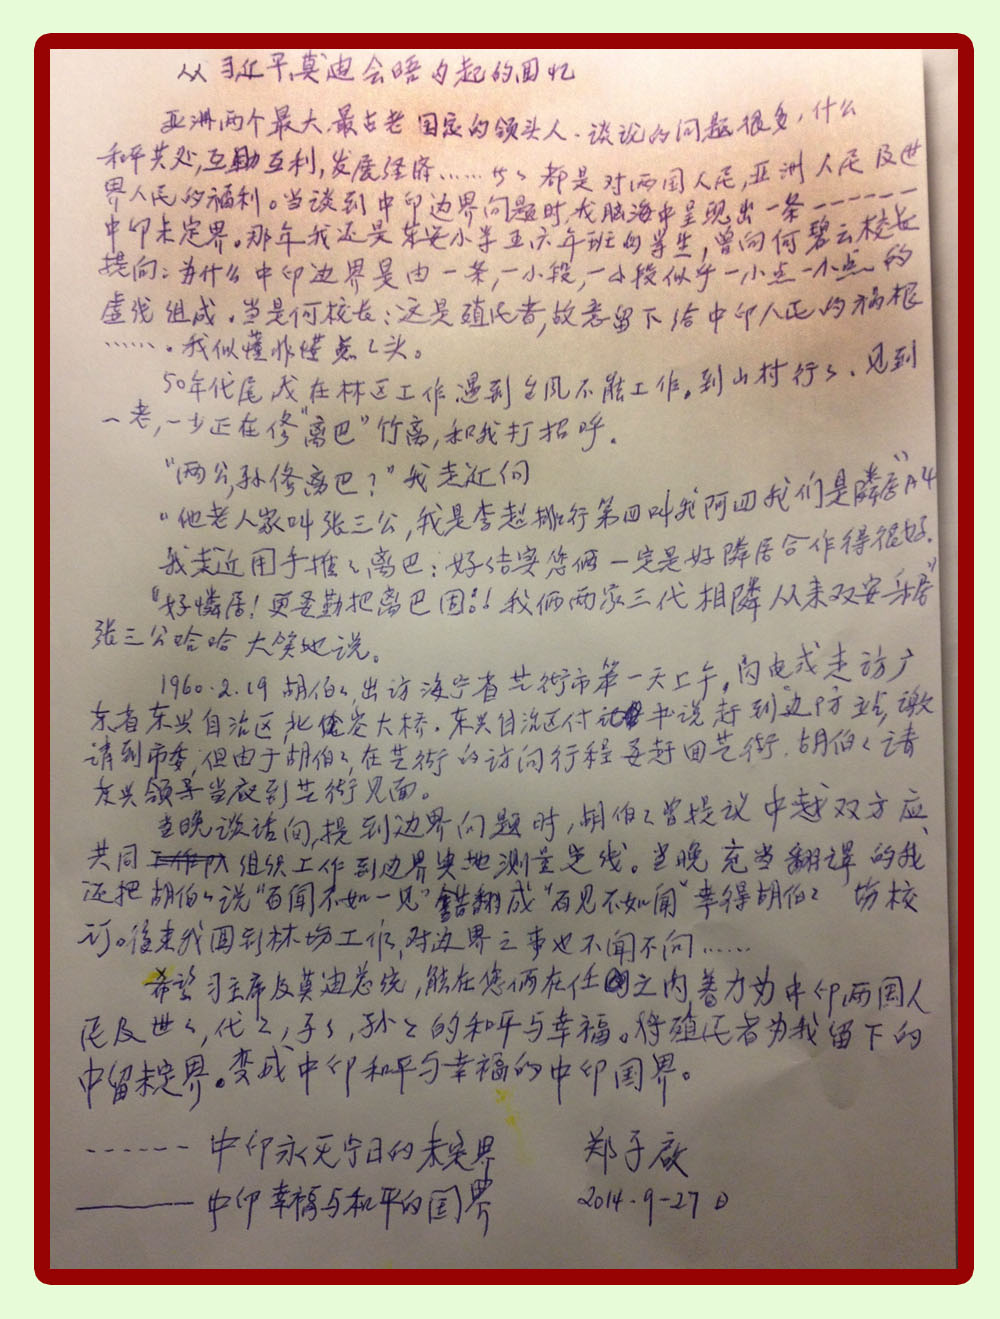 从习近平、莫迪会晤勾起的回忆
亚洲两个最大、最古老国家的领头人、谈说的问题很多，什么
和平共处，互助互利，发展经济……等々都是对两国人民，亚洲人民及世
界人民的福利。当谈到中印边界问题时，我脑海中呈现出一条-------
中印未定界。那年我还是华安小学五六年班的学生，曾向何碧云校长
提问：为什么中印边界是由一条，一小段，一小段似乎一小点一小点的
虚线组成。当是何校长：这是殖民者，故意留下给中印人民的祸根
……。我似懂非懂点々头。
50年代尾，我在林区工作遇到台风不能工作。到山村行々、见到
一老，一少正在修“离巴”竹离，和我打招呼。
“两公孙修离巴？”我走近问
“他老人家叫张三公，我是李超排行第四叫我阿四我们是隣居”阿4
我走近用手推々离巴：好结实您俩一定是好隣居合作得很好.
“好憐居！更要勤把离巴固！！我俩两家三代相隣从来双安乐居”
张三公哈哈大笑地说。
1960.2.19胡伯々出访海宁省芒街市第一天上午，内电我走访广
东省东兴自治区北仑大桥。东兴自治区付书说赶到边防站，邀
请到市委，但由于胡伯々在芒街的访问行程要赶回芒街.胡伯々请
东兴领导当夜到芒街见面。
当晚谈话间，提到边界问题时，胡伯々曾提议中越双方应
共同组织工作到边界实地测量定线。当晚充当翻译的我
还把胡伯々说“百闻不如一见”错翻成“百见不如闻”幸得胡伯々 校
订。後来我回到林场工作，对边界之事也不闻不问……
希望习主席及莫迪总统，能在您俩在任之内着力为中印两国人
民及世々，代々，子々，孙々的和平与幸福。将殖民者为我留下的
中留未定界。变成中印和平与幸福的中印国界。
------ 中印永无宁日的未定界 郑子啟
——— 中印幸福与和平的国界 2014-9-27日